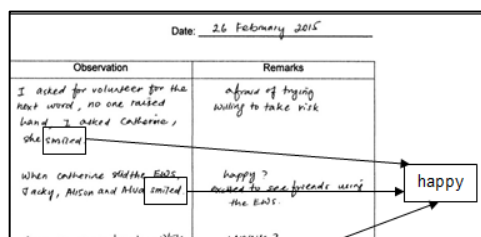 Date: 26 February 2015
Observation Remarks
I asked for volunteer for the
next word, no one raised
hand, I asked Catherine,
she smiled.
afraid of trying
willing to take risk
When Catherine did the EWS,
Jacky, Alison and Alva smiled.
happy?
excited to see friends using
the EWS.
happy